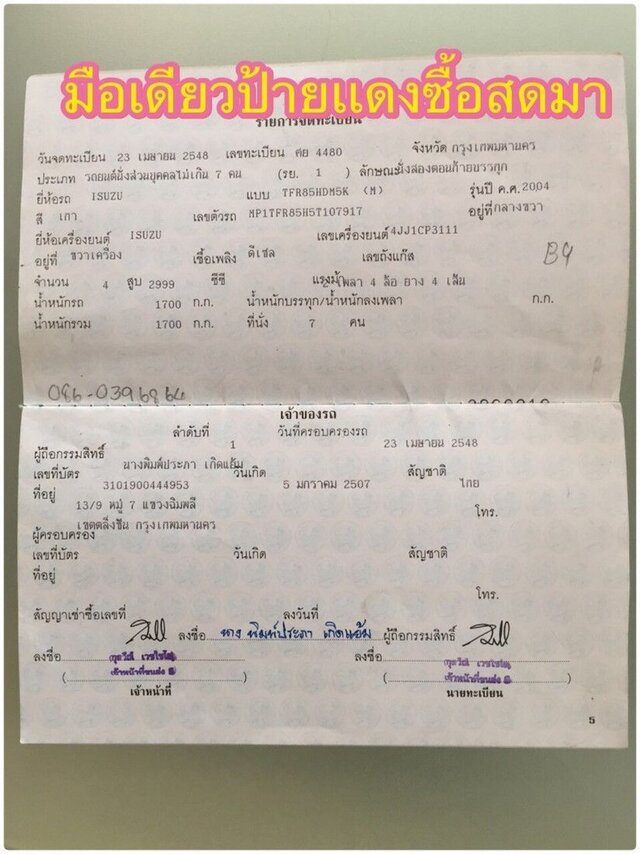 มือเดียวป้ายแดงซื้อสดมา
รายการจดทะเบียน
วันจดทะเบียน 23 เมษายน 2548 เลขทะเบียน ศย 4480 จังหวัด กรุงเทพมหานคร
ประเภท รถยนต์นั่งส่วนบุคคลไม่เกิน 7 คน (รย. 1 ) ลักษณะ นั่งสองตอนท้ายบรรทุก
ยี่ห้อรถ ISUZU แบบ TFR85HDM5K (M) รุ่นปี ค.ศ. 2004
สี เทา เลขตัวรถ MP1TFR85H5T107917 อยู่ที่ กลางขวา
ยี่ห้อเครื่องยนต์ ISUZU เลขเครื่องยนต์ 4JJ1CP3111
อยู่ที่ ขวาเครื่อง เชื้อเพลิง ดีเซล เลขถังแก๊ส
B9
จำนวน 4 สูบ 2999 ซีซี แรงม้า 2 เพลา 4 ล้อ ยาง 4 เส้น
น้ำหนักรถ 1700 ก.ก. น้ำหนักบรรทุก/น้ำหนักลงเพลา ก.ก.
น้ำหนักรวม 1700 ก.ก. ที่นั่ง 7 คน
086-0396864
เจ้าของรถ
ลำดับที่ 1 วันที่ครอบครองรถ 23 เมษายน 2548
ผู้ถือกรรมสิทธิ์ นางพิมพ์ประภา เกิดแย้ม
เลขที่บัตร 3101900444953 วันเกิด 5 มกราคม 2507 สัญชาติ ไทย
ที่อยู่ 13/9 หมู่ 7 แขวงฉิมพลี
เขตตลิ่งชัน กรุงเทพมหานคร โทร.
ผู้ครอบครอง
เลขที่บัตร วันเกิด สัญชาติ
ที่อยู่
โทร.
สัญญาเช่าซื้อเลขที่ ลงวันที่
ลงชื่อ นาง พิมพ์ประภา เกิดแย้ม ผู้ถือกรรมสิทธิ์
ลงชื่อ ลงชื่อ
เจ้าหน้าที่ขนส่ง 5 เจ้าหน้าที่ขนส่ง 5
เจ้าหน้าที่ นายทะเบียน
5